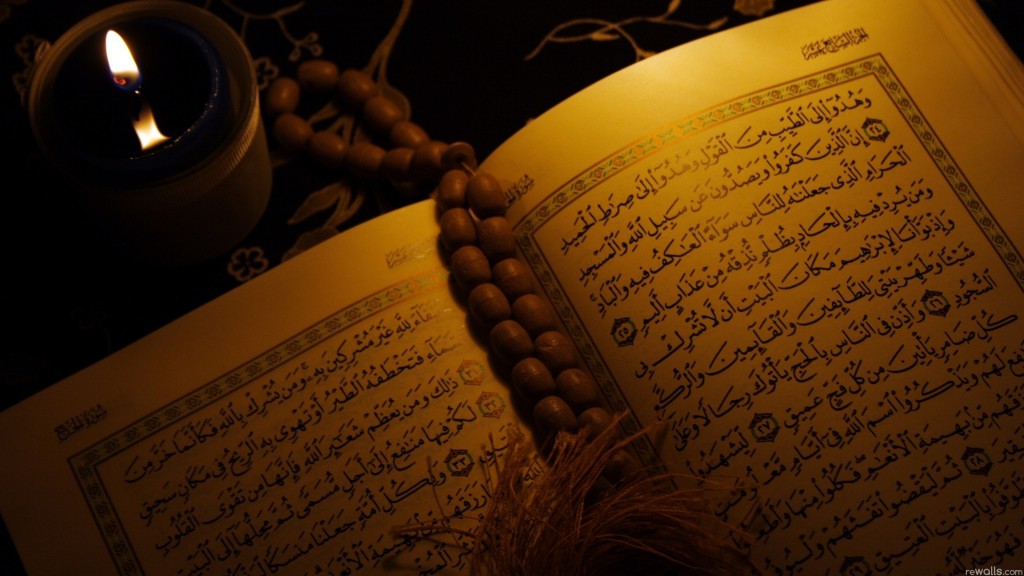 الجزء السابع عشر
وَهُدُوٓا۟ إِلَى ٱلطَّيِّبِ مِنَ ٱلْقَوْلِ وَهُدُوٓا۟ إِلَىٰ صِرَٰطِ ٱلْحَمِيدِ
٢٤ إِنَّ ٱلَّذِينَ كَفَرُوا۟ وَيَصُدُّونَ عَن سَبِيلِ ٱللَّهِ وَٱلْمَسْجِدِ
ٱلْحَرَامِ ٱلَّذِى جَعَلْنَٰهُ لِلنَّاسِ سَوَآءً ٱلْعَٰكِفُ فِيهِ وَٱلْبَادِ
وَمَن يُرِدْ فِيهِ بِإِلْحَادٍۭ بِظُلْمٍ نُّذِقْهُ مِنْ عَذَابٍ أَلِيمٍ ٢٥
وَإِذْ بَوَّأْنَا لِإِبْرَٰهِيمَ مَكَانَ ٱلْبَيْتِ أَن لَّا تُشْرِكْ بِى
شَيْـًٔا وَطَهِّرْ بَيْتِىَ لِلطَّآئِفِينَ وَٱلْقَآئِمِينَ وَٱلرُّكَّعِ
ٱلسُّجُودِ ٢٦ وَأَذِّن فِى ٱلنَّاسِ بِٱلْحَجِّ يَأْتُوكَ رِجَالًا وَعَلَىٰ
كُلِّ ضَامِرٍ يَأْتِينَ مِن كُلِّ فَجٍّ عَمِيقٍ ٢٧ لِّيَشْهَدُوا۟
لَهُمْ وَيَذْكُرُوا۟ ٱسْمَ ٱللَّهِ فِىٓ أَيَّامٍ
مِّنۢ بَهِيمَةِ ٱلْأَنْعَٰمِ فَكُلُوا۟ مِنْهَا
٢٨ ثُمَّ لْيَقْضُوا۟ تَفَثَهُمْ
بِٱلْبَيْتِ ٱلْعَتِيقِ
سورة الحج
لِلَّهِ غَيْرَ مُشْرِكِينَ بِهِۦ وَمَن يُشْرِكْ بِٱللَّهِ فَكَأَنَّمَا خَرَّ مِنَ
فَتَخْطَفُهُ ٱلطَّيْرُ أَوْ تَهْوِى بِهِ ٱلرِّيحُ فِى مَكَانٍ سَحِيقٍ
٣١ ذَٰلِكَ وَمَن يُعَظِّمْ شَعَٰٓئِرَ ٱللَّهِ فَإِنَّهَا مِن تَقْوَى ٱلْقُلُوبِ
٣٢ لَكُمْ فِيهَا مَنَٰفِعُ إِلَىٰٓ أَجَلٍ مُّسَمًّى ثُمَّ مَحِلُّهَآ إِلَى ٱلْبَيْتِ
٣٣ وَلِكُلِّ أُمَّةٍ جَعَلْنَا مَنسَكًا
rewalls.com